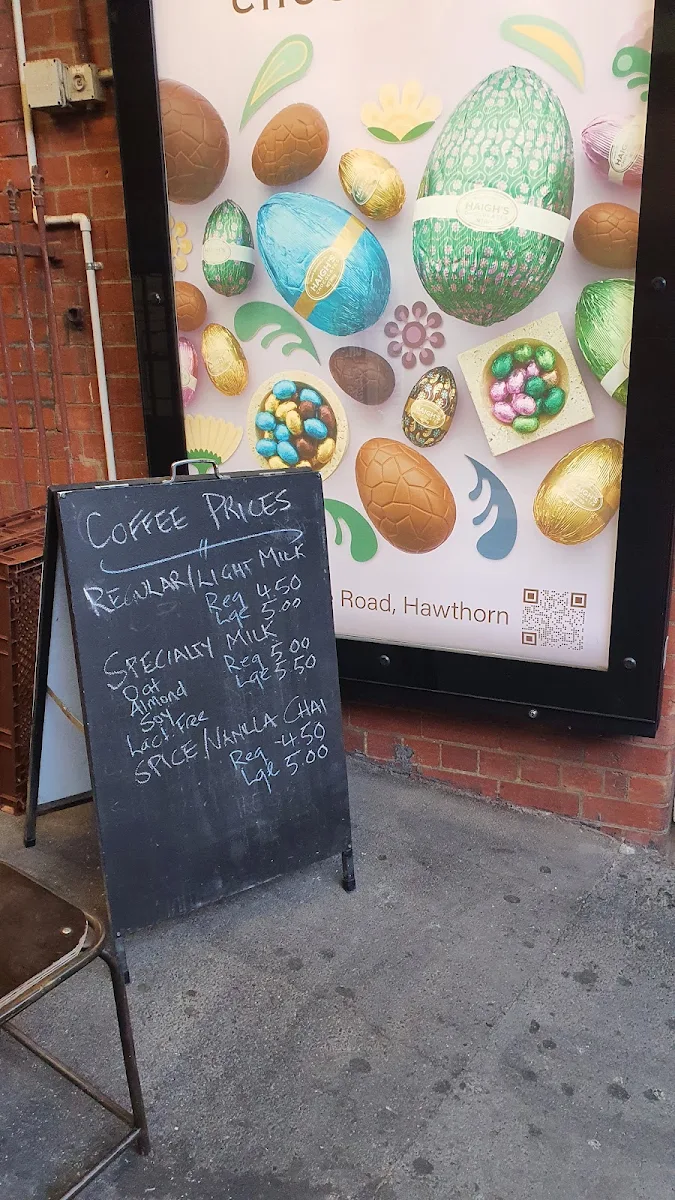 HAIGH'S
HAIGH'S
Road, Hawthorn
COFFEE PRICES
REGULAR/LIGHT MILK
Reg 4.50
Lge 5.00
SPECIALTY MILK
Oat Reg 5.00
Almond Lge 5.50
Soy
Lact. Free
SPICE/VANILLA CHAI
Reg -4.50
Lge 5.00